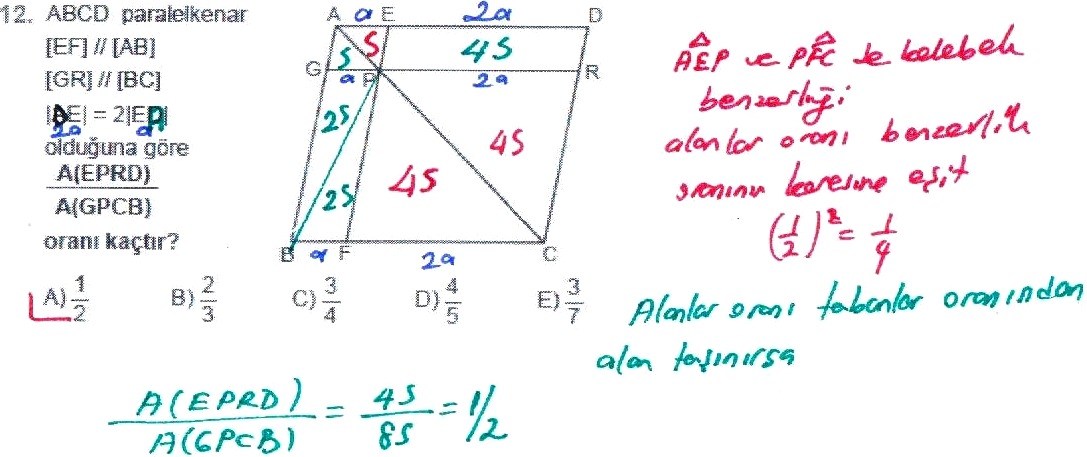 12. ABCD paralelkenar
[EF] // [AB]
[GR] // [BC]
|DE| = 2|EA|
2a a
olduğuna göre
A(EPRD)
A(GPCB)
oranı kaçtır?
A a E 2a D
S S 4S
G a P 2a R
2S
4S
2S 4S
B a F 2a C
A) 1/2 B) 2/3 C) 3/4 D) 4/5 E) 3/7
AEP ve PFC de kelebek
benzerliği
alanlar oranı benzerlik
oranının karesine eşit
(1/2)² = 1/4
Alanlar oranı tabanlar oranından
alan taşınırsa
A(EPRD) / A(GPCB) = 4S / 8S = 1/2